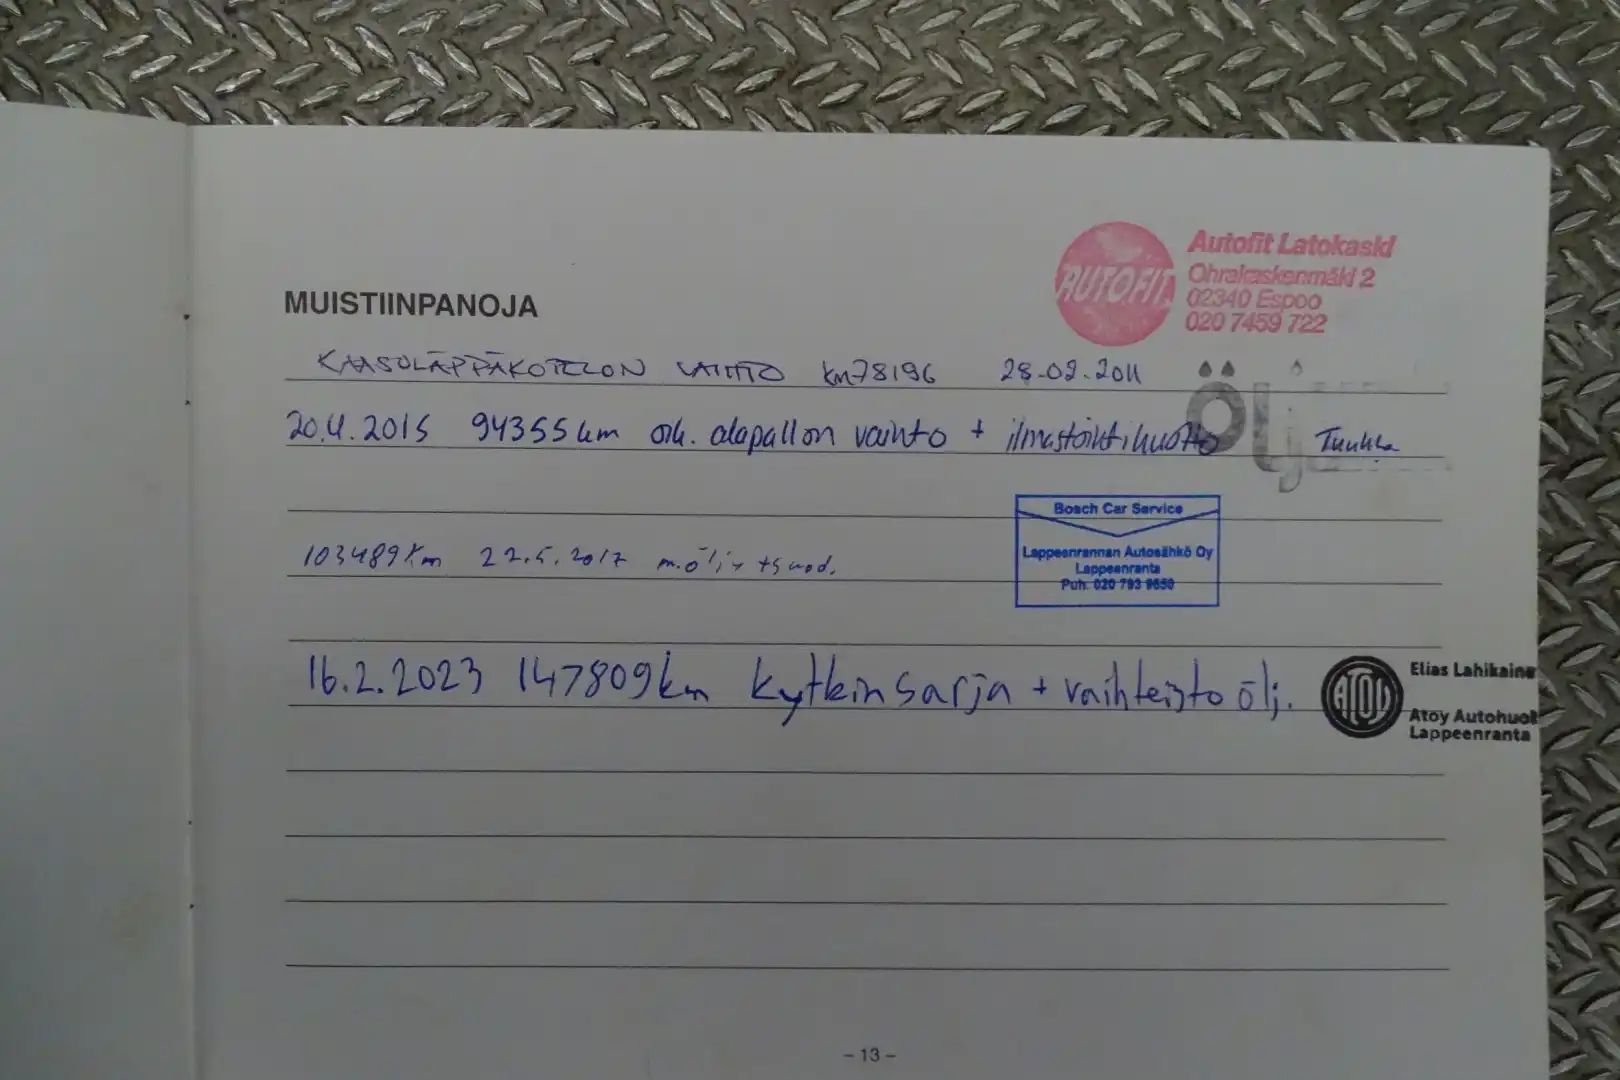 Autofit Latokaski
Ohrakaskenmäki 2
02340 Espoo
020 7459 722
AUTOFIT
MUISTIINPANOJA
KAASULÄPPÄKOTELON VAIHTO KM78196 28.02.2011
20.4.2015 94355km oik. alapallon vaihto + ilmastointihuolto Tuukka
Ölj
Bosch Car Service
Lappeenrannan Autosähkö Oy
Lappeenranta
Puh. 020 793 9650
103489km 22.5.2017 m.öljy +suod.
16.2.2023 147809km Kytkinsarja + vaihteisto ölj.
ATOY
Elias Lahikaine
Atoy Autohuol
Lappeenranta
- 13 -